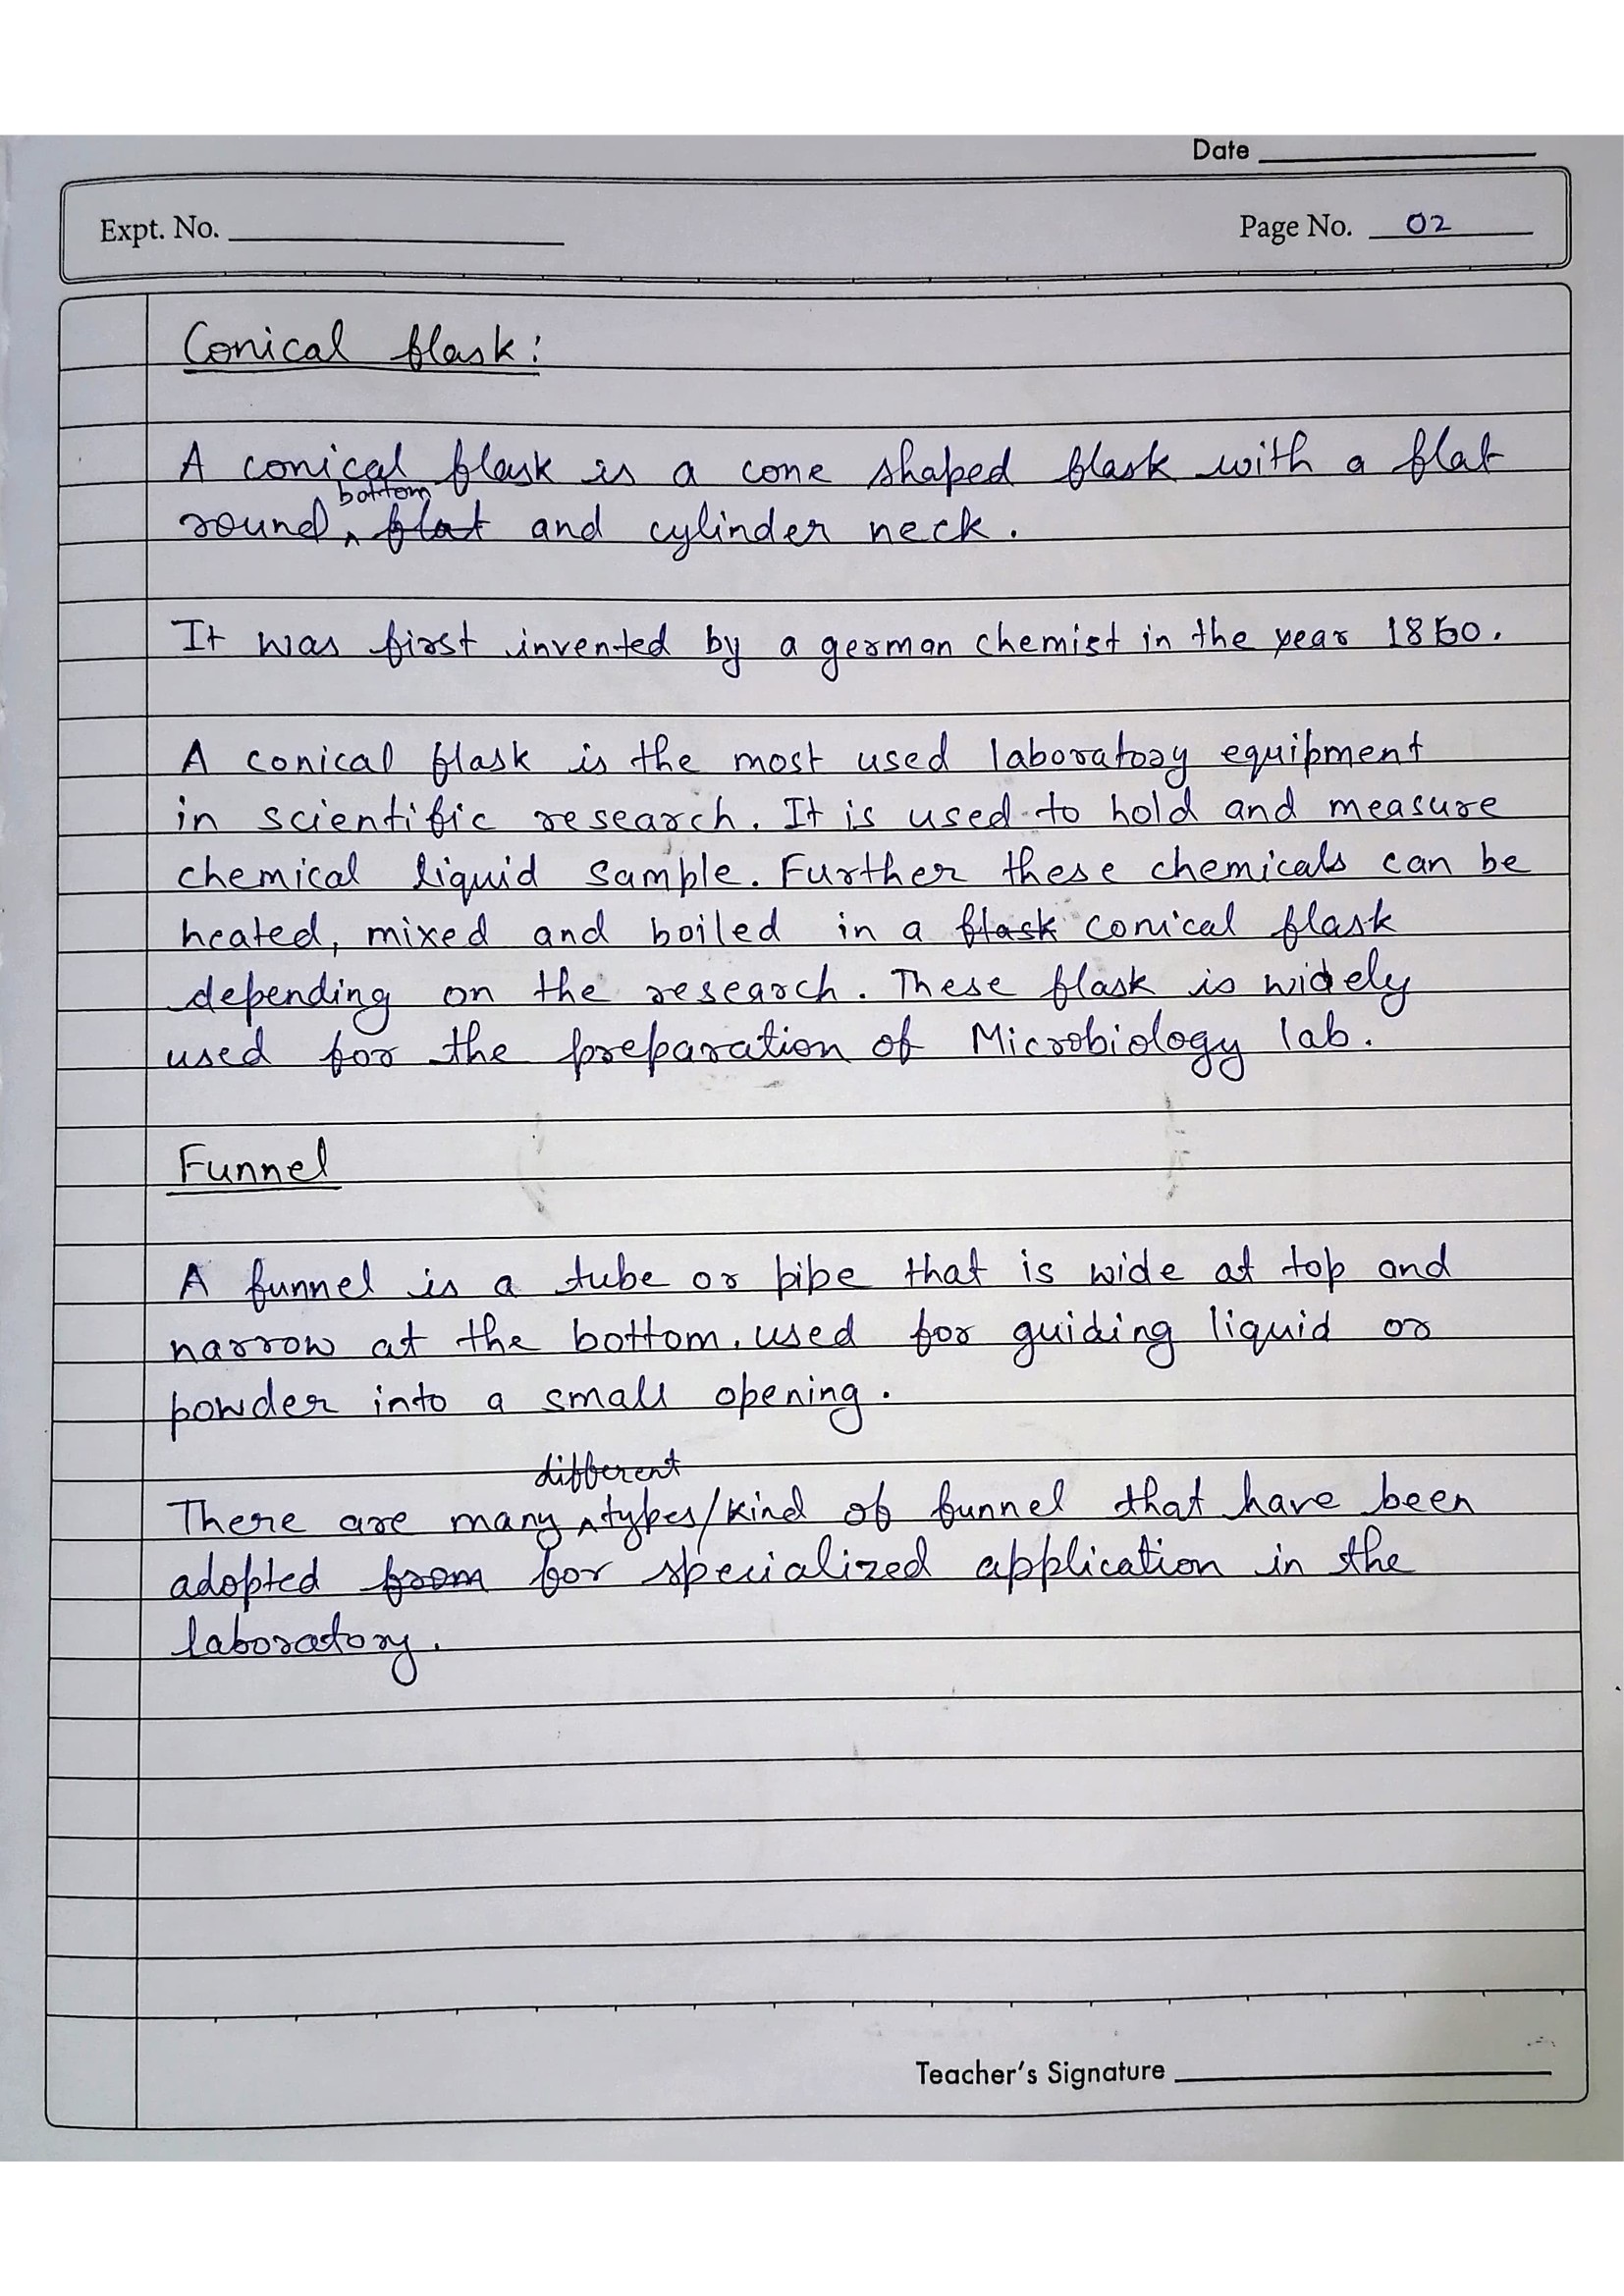 Date
Expt. No.
Page No. 02
Conical flask:
A conical flask is a cone shaped flask with a flat
bottom
round ^ flat and cylinder neck.
It was first invented by a german chemist in the year 1860.
A conical flask is the most used laboratory equipment
in scientific research. It is used to hold and measure
chemical liquid sample. Further these chemicals can be
heated, mixed and boiled in a flask conical flask
depending on the research. These flask is widely
used for the preparation of Microbiology lab.
Funnel
A funnel is a tube or pipe that is wide at top and
narrow at the bottom. used for guiding liquid or
powder into a small opening.
different
There are many ^ types/kind of funnel that have been
adopted from for specialized application in the
laboratory.
Teacher's Signature